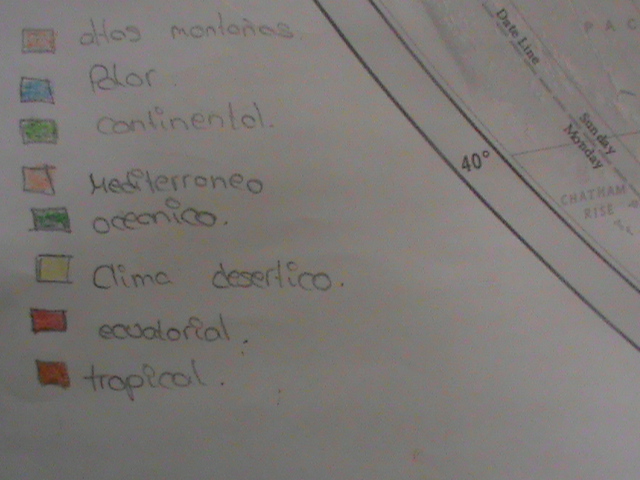 altas montañas.
Polar.
continental.
Mediterraneo
oceanico.
Clima desertico.
ecuatorial.
tropical.
40°
Date Line
Sunday
Monday
PAC
CHATHAM
RISE